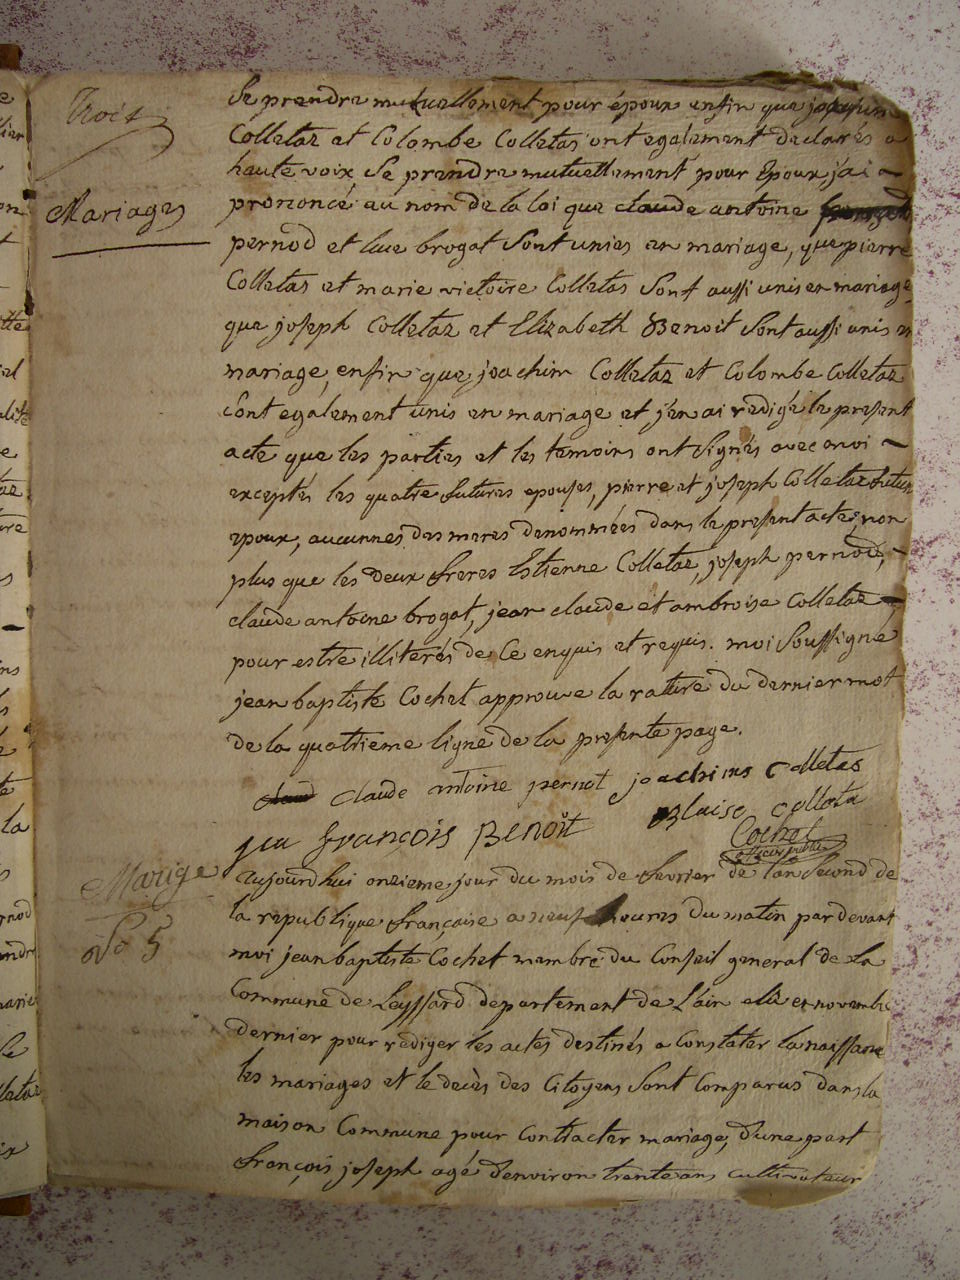 Trois
Mariages
Se prendre mutuellement pour époux enfin que joachim
Colletaz et Colombe Colletas ont egalement declarés a
haute voix Se prendre mutuellement pour Epoux, j'ai
prononcé au nom de la loi que claude antoine
pernod et luce brogat Sont unies en mariage, que pierre
Colletas et marie victoire Colletas Sont aussi unis en mariage,
que joseph Colletaz et Elizabeth Benoit Sont aussi unis en
mariage, enfin que joachim Colletaz et Colombe Colletaz
Sont egalement unis en mariage et j'en ai redigé le present
acte que les parties et les temoins ont Signés avec moi
exceptés les quatre futures epouses, pierre et joseph Colletaz futurs
epoux, aucunnes des meres denommées dans le present acte, non
plus que les deux freres Estienne Colletaz, joseph pernod,
claude antoine brogat, jean claude et ambroise Colletaz
pour estre illiterés de Ce enquis et requis. moi Soussigné
jean baptiste Cochet approuve la rature du dernier mot
de la quatrieme ligne de la presente page.
claude antoine pernot joachins colletas
françois Benoit Blaise collata
Cochet
officier public
Marige
No 5
aujourdhui onzieme jour du mois de fevrier de l'an Second de
la republique françoise a neuf heures du matin par devant
moi jean baptiste Cochet membre du Conseil general de La
Commune de Leyssard departement de L'ain elu en novembre
dernier pour rediger les actes destinés a Constater la naissance
les mariages et le decès des Citoyens Sont Comparus dans la
maison Commune pour Contracter mariage, d'une part
françois joseph agé d'environ trente ans cultivateur